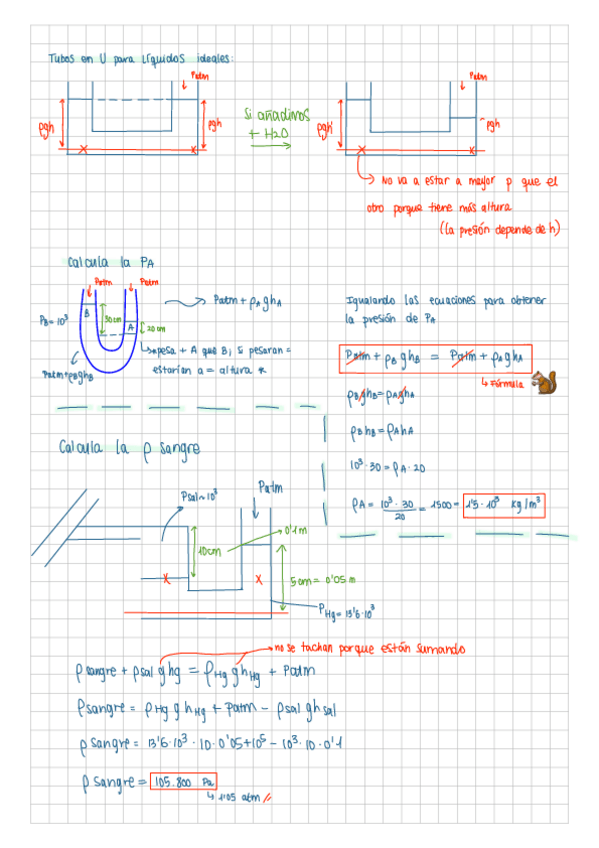 Tubos en U para líquidos ideales:
Patm
Patm
ρgh
ρgh
Si añadimos
+ H2O
ρgh'
ρgh
No va a estar a mayor p que el
otro porque tiene más altura
(la presión depende de h)
Calcula la PA
Patm
Patm
B
PB = 10³
30cm
A
20cm
Patm + ρAghA
Patm+ρBghB
pesa + A que B; si pesaran =
estarían a = altura
Igualando las ecuaciones para obtener
la presión de PA
Patm + ρB ghB = Patm + ρAghA
Fórmula
ρBghB = ρAghA
ρBhB = ρAhA
10³·30 = ρA·20
ρA = 10³·30 / 20 = 1500 = 1'5·10³ kg/m³
Calcula la ρ sangre
Psal~10³
Patm
0'1m
10cm
5cm = 0'05m
PHg = 13'6·10³
no se tachan porque están sumando
ρsangre + ρsal ghg = ρHg ghHg + Patm
ρsangre = ρHg g hHg + Patm - ρsal ghsal
ρsangre = 13'6·10³·10·0'05+10⁵ - 10³·10·0'1
ρsangre = 105.800 Pa
1'05 atm //